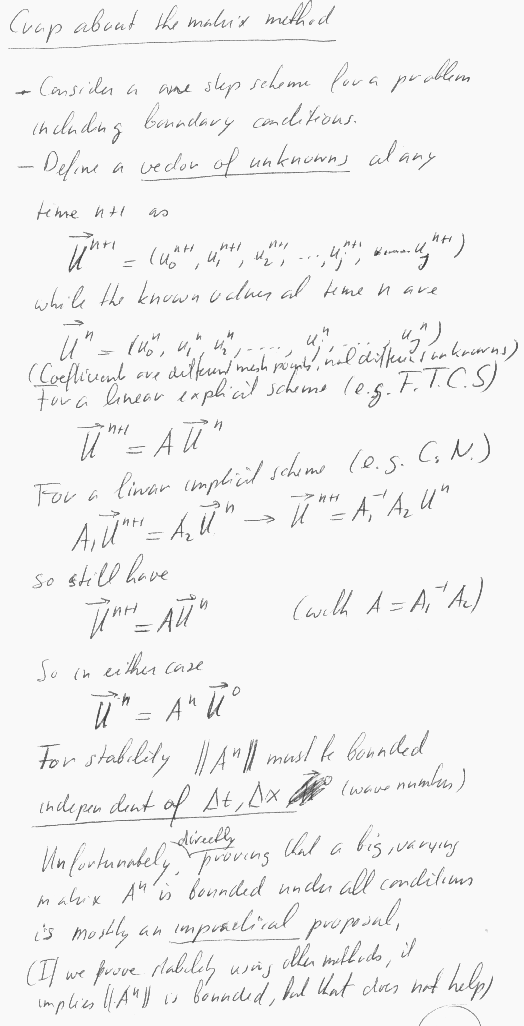 Crap about the matrix method
- Consider a one step scheme for a problem
including boundary conditions.
- Define a vector of unknowns at any
time n+1 as
U⃗ⁿ⁺¹ = (u₀ⁿ⁺¹, u₁ⁿ⁺¹, u₂ⁿ⁺¹, ..., uⱼⁿ⁺¹, ... u_Jⁿ⁺¹)
while the known values at time n are
U⃗ⁿ = (u₀ⁿ, u₁ⁿ u₂ⁿ, ....., uⱼⁿ, ...., u_Jⁿ)
(Coefficient are different mesh points, not different unknowns)
For a linear explicit scheme (e.g. F.T.C.S)
U⃗ⁿ⁺¹ = A U⃗ⁿ
For a linear implicit scheme (e.g. C.N.)
A₁U⃗ⁿ⁺¹ = A₂U⃗ⁿ → U⃗ⁿ⁺¹ = A₁⁻¹ A₂ Uⁿ
so still have
U⃗ⁿ⁺¹ = AU⃗ⁿ (with A = A₁⁻¹A₂)
So in either case
U⃗ⁿ = Aⁿ U⃗⁰
For stability ||Aⁿ|| must be bounded
independent of Δt, Δx (wave number)
Unfortunately, directly proving that a big, varying
matrix Aⁿ is bounded under all conditions
is mostly an impractical proposal,
(If we prove stability using other methods, it
implies ||Aⁿ|| is bounded, but that does not help)